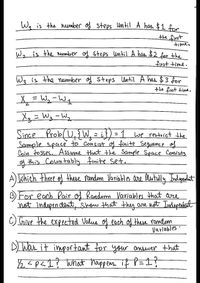 W₁ is the number of steps until A has $1 for
the first
time.
W₂ is the number of steps until A has $2 for the
first time.
W₃ is the number of steps until A has $3 for
the first time.
X₁ = W₂ - W₁
X₂ = W₃ - W₂
Since Prob(U{W = i}) = 1 we restrict the
Sample space to consist of finite sequence of
Coin tosses. Assume that the Sample Space consists
of this Countably finite set.
A) Which three of these random Variables are Mutually Independent
B) For each Pair of Random Variables that are
not independent, show that they are not Independent.
C) Give the expected Value of each of these random
Variables
D) Was it important for your answer that
½ < p < 1? What happens if P = 1?